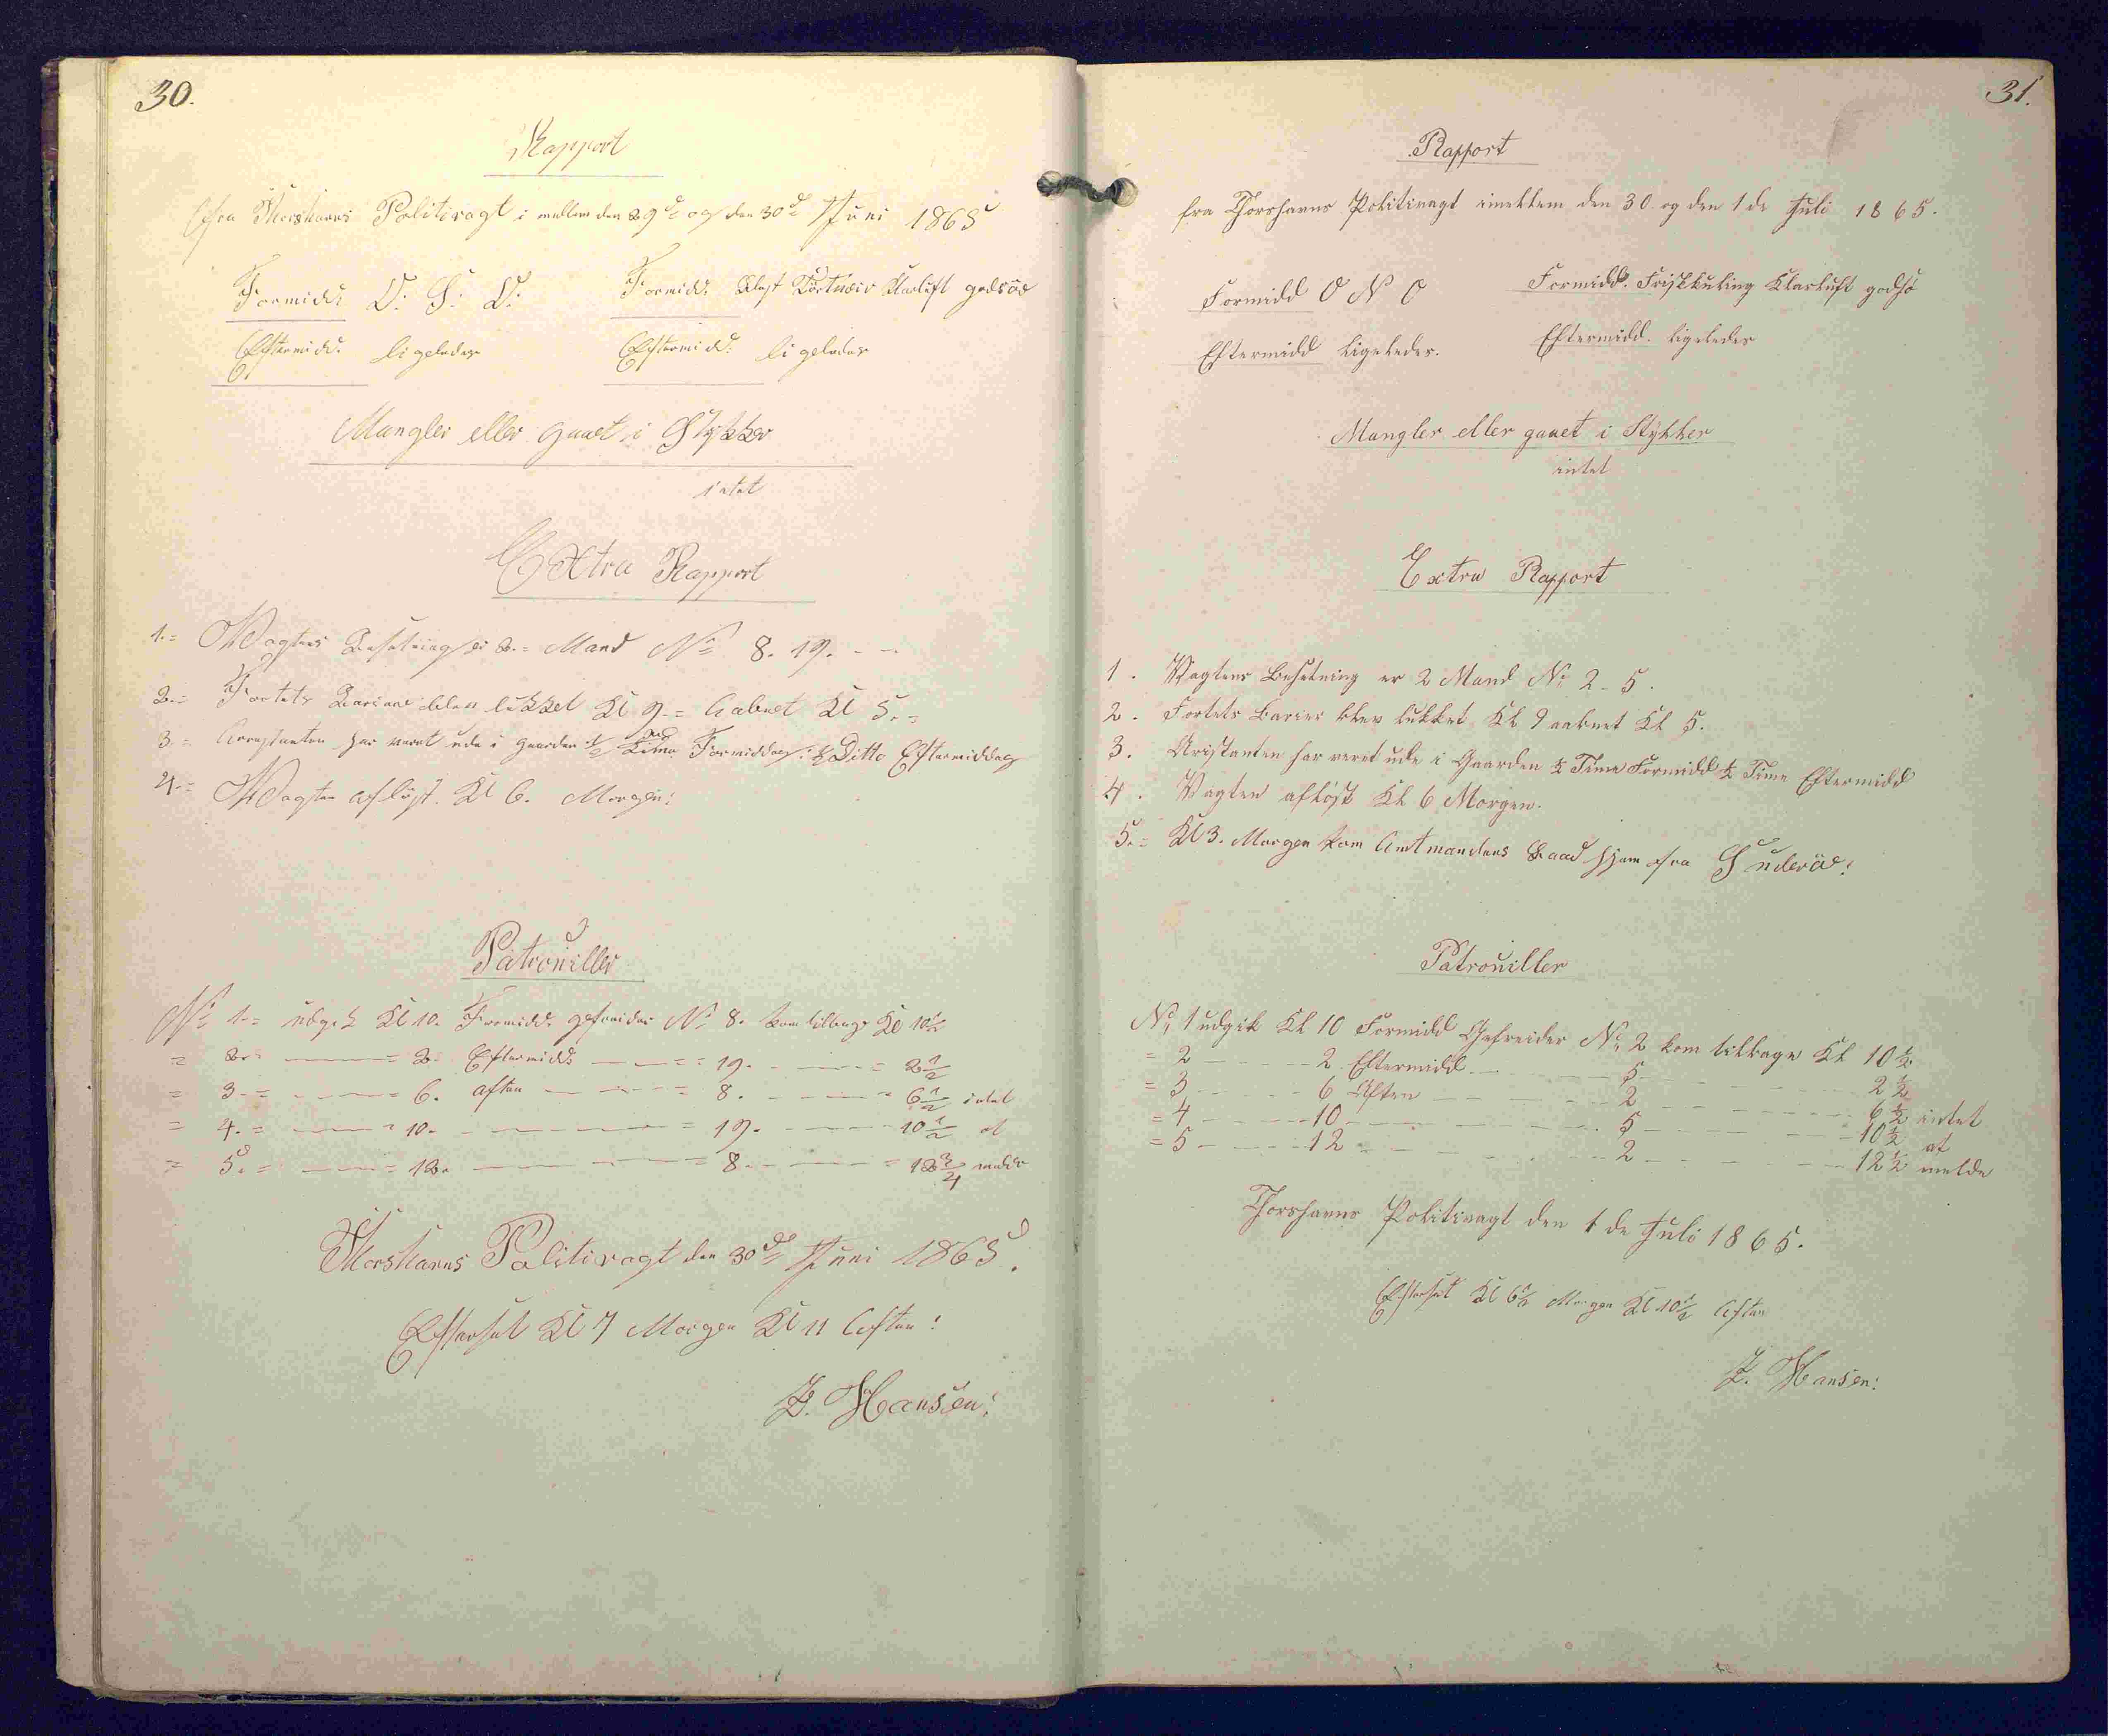 30.
Rapport
fra Thorshavns Politivagt i mellem den 29de og den 30de Juni 1865
Formidd: O. S. O. Formidd. Klarluft godsöe
Eftermidd. ligeledes Eftermidd. ligeledes
Mangler eller gaaet i Stykker
intet
Extra Rapport
1.= Wagtens Besetning er 2.= Mand No 8. 19. - -
2.= Fortets Bariere blev lukket Kl 9.= Aabnet Kl 5.=
3.= Arrestanten har veret ude i Gaarden ½ Time Formiddag ½ Ditto Eftermiddag
4.= Wagten aflöst Kl 6. Morgen:
Patrouiller
No 1.= udgik Kl 10. Formidd. gefreider No 8. kom tilbage Kl 10½
= 2.= - = 2. Eftermidd: - = 19. - = 2½
= 3.= - = 6. aften - = 8. - = 6½ intet
= 4.= - = 10. - = 19. - 10½ at
= 5.= - = 12. - = 8. - = 12¾ melde
Thorshavns Politivagt den 30de Juni 1865.
Efterset Kl 7 Morgen Kl 11 Aften!
J. Hansen:
31.
Rapport
fra Thorshavns Politivagt imellem den 30. og den 1de Juli 1865.
Formidd O N O Formidd. Friskkuling Klarluft godsö
Eftermidd ligeledes. Eftermidd. ligeledes
Mangler eller gaaet i Stykker
intet
Extra Rapport
1. Vagtens Besetning er 2 Mand No 2 - 5.
2. Fortets Barier blev lukket Kl 9 aabnet Kl 5.
3. Aristanten har veret ude i Gaarden ½ Time Formidd ½ Time Eftermidd
4. Vagten aflöst Kl 6 Morgen.
5.= Kl 3. Morgen kom Amtmandens Baad hjem fra Suderöe:
Patrouiller
No 1 udgik Kl 10 Formidd Gefreider No 2 kom tilbage Kl 10½
= 2 - 2. Eftermidd - 5 - 2½
= 3 - 6 Aften - 2 - 6½ intet
= 4 - 10 - 5 - 10½ at
= 5 - 12 - 2 - 12½ melde
Thorshavns Politivagt den 1de Juli 1865.
Efterset Kl 6½ Morgen Kl 10½ Aften
J. Hansen: